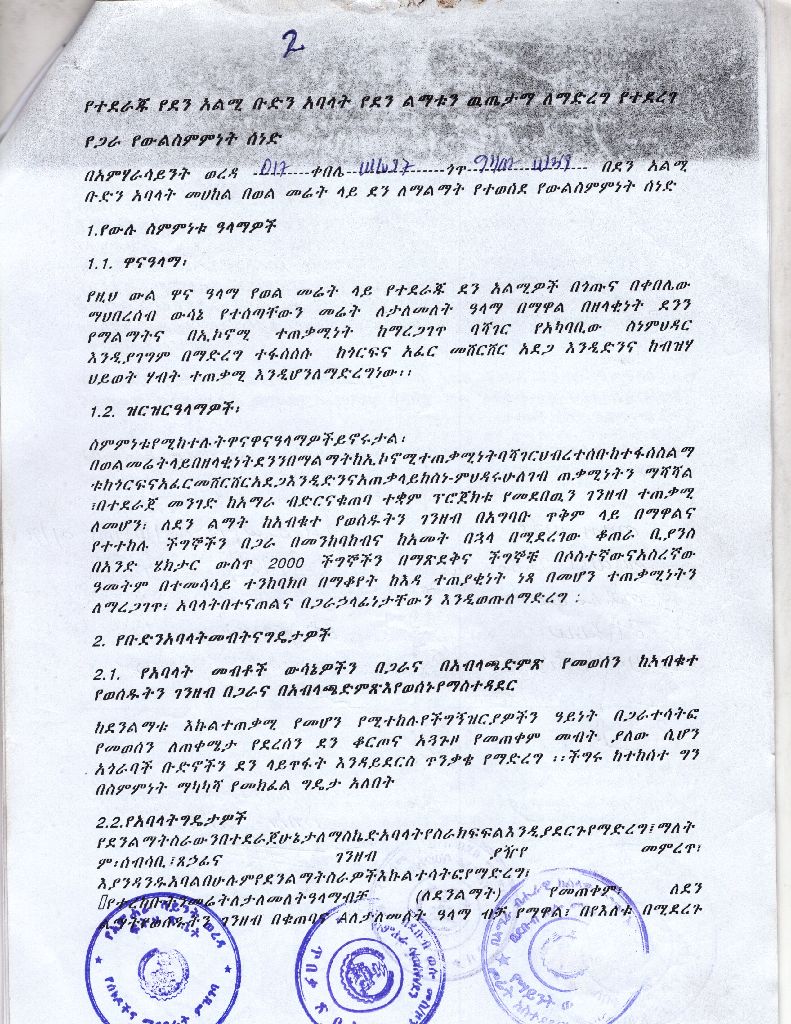 2
የተደራጁ የደን አልሚ ቡድን አባላት የደን ልማቱን ዉጤታማ ለማድረግ የተደረገ
የጋራ የውልስምምነት ሰነድ
በአምሃራሳይንት ወረዳ 017 ቀበሌ ጎጥ በደን አልሚ
ቡድን አባላት መሀከል በወል መሬት ላይ ደን ለማልማት የተወሰደ የውልስምምነት ሰነድ
1.የውሉ ስምምነቱ ዓላማዎች
1.1. ዋናዓላማ፡
የዚህ ውል ዋና ዓላማ የወል መሬት ላይ የተደራጁ ደን አልሚዎች በጎጡና በቀበሌው
ማህበረሰብ ውሳኔ የተሰጣቸውን መሬት ለታለመለት ዓላማ በማዋል በዘላቂነት ደንን
የማልማትና በኢኮኖሚ ተጠቃሚነት ከማረጋገጥ ባሻገር የአካባቢው ስነምህዳር
እንዲያገግም በማድረግ ተፋሰሰሱ ከጎርፍና አፈር መሸርሸር አደጋ እንዲድንና ከብዝሃ
ህይወት ሃብት ተጠቃሚ እንዲሆንለማድረግነው፡፡
1.2. ዝርዝርዓላማዎች፡
ስምምነቱየሚከተሉትዋናዋናዓላማዎችይኖሩታል፡
በወልመሬትላይበዘላቂነትደንንበማልማትከኢኮኖሚተጠቃሚነትባሻገርህብረተሰቡከተፋሰስልማ
ቱከጎርፍናአፈርመሸርሸርአደጋእንዲድንናአጠቃላይከስነ-ምህዳሩሁለገብ ጠቃሚነትን ማሻሻል
፣በተደራጀ መንገድ ከአማራ ብድርናቁጠባ ተቋም ፕሮጀክቱ የመደበዉን ገንዘብ ተጠቃሚ
ለመሆን፣ ለደን ልማት ከአብቁተ የወሰዱትን ገንዘብ በአግባቡ ጥቅም ላይ በማዋልና
የተተከሉ ችግኞችን በጋራ በመንከባከብና ከአመት በኋላ በሚደረገው ቆጠራ ቢያንስ
በአንድ ሄክታር ውስጥ 2000 ችግኞችን በማጽደቅና ችግኞቹ በሶስተኛውናአስረኛው
ዓመትም በተመሳሳይ ተንከባክቦ በማቆየት ከእዳ ተጠያቂነት ነጻ በመሆን ተጠቃሚነትን
ለማረጋገጥ፡ አባላትበተናጠልና በጋራኃላፊነታቸውን እንዲወጡለማድረግ ፡
2. የቡድንአባላትመብትናግዴታዎች
2.1. የአባላት መብቶች ውሳኔዎችን በጋራና በአብላጫድምጽ የመወሰን ከአብቁተ
የወሰዱትን ገንዘብ በጋራና በአብላጫድምጽእየወሰኑየማስተዳደር
ከደንልማቱ እኩልተጠቃሚ የመሆን የሚተከሉየችግኝዝርያዎችን ዓይነት በጋራተሳትፎ
የመወሰን ለጠቀሜታ የደረሰን ደን ቆርጦና አጓጉዞ የመጠቀም መብት ያለው ሲሆን
አጎራባች ቡድኖችን ደን ላይጥፋት እንዳይደርስ ጥንቃቄ የማድረግ ፡፡ችግሩ ከተከሰተ ግን
በስምምነት ማካካሻ የመክፈል ግዴታ አለበት
2.2.የአባላትግዴታዎች
የደንልማትስራውንበተደራጀሁኔታለማስኬድአባላትየስራክፍፍልእንዲያደርጉየማድረግ፣ማለት
ም፡ሰብሳቢ፣ጸኃፊና ገንዘብ ያዥየ መምረጥ፣
እያንዳንዱአባልበሁሉምየደንልማትስራዎችእኩልተሳትፎየማድረግ፣
የተረከቡትንመሬትለታለመለትዓላማብቻ (ለደንልማት) የመጠቀም፣ ለደን
ልማትየወሰዱትን ገንዘብ በቁጠባና ለታለመለት ዓላማ ብቻ የማዋል፣ በየእለቱ በሚደረጉ